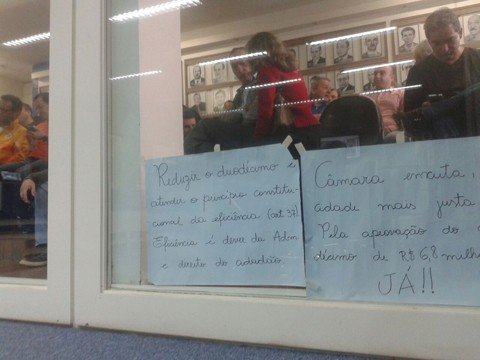 Reduzir o duodécimo é
atender o princípio constitu-
cional da eficiência (art 37)
Eficiência é dever da Adm
e direito do cidadão.
Câmara enxuta,
cidade mais justa
Pela aprovação do
décimo de R$ 6,8 milh
JÁ!!